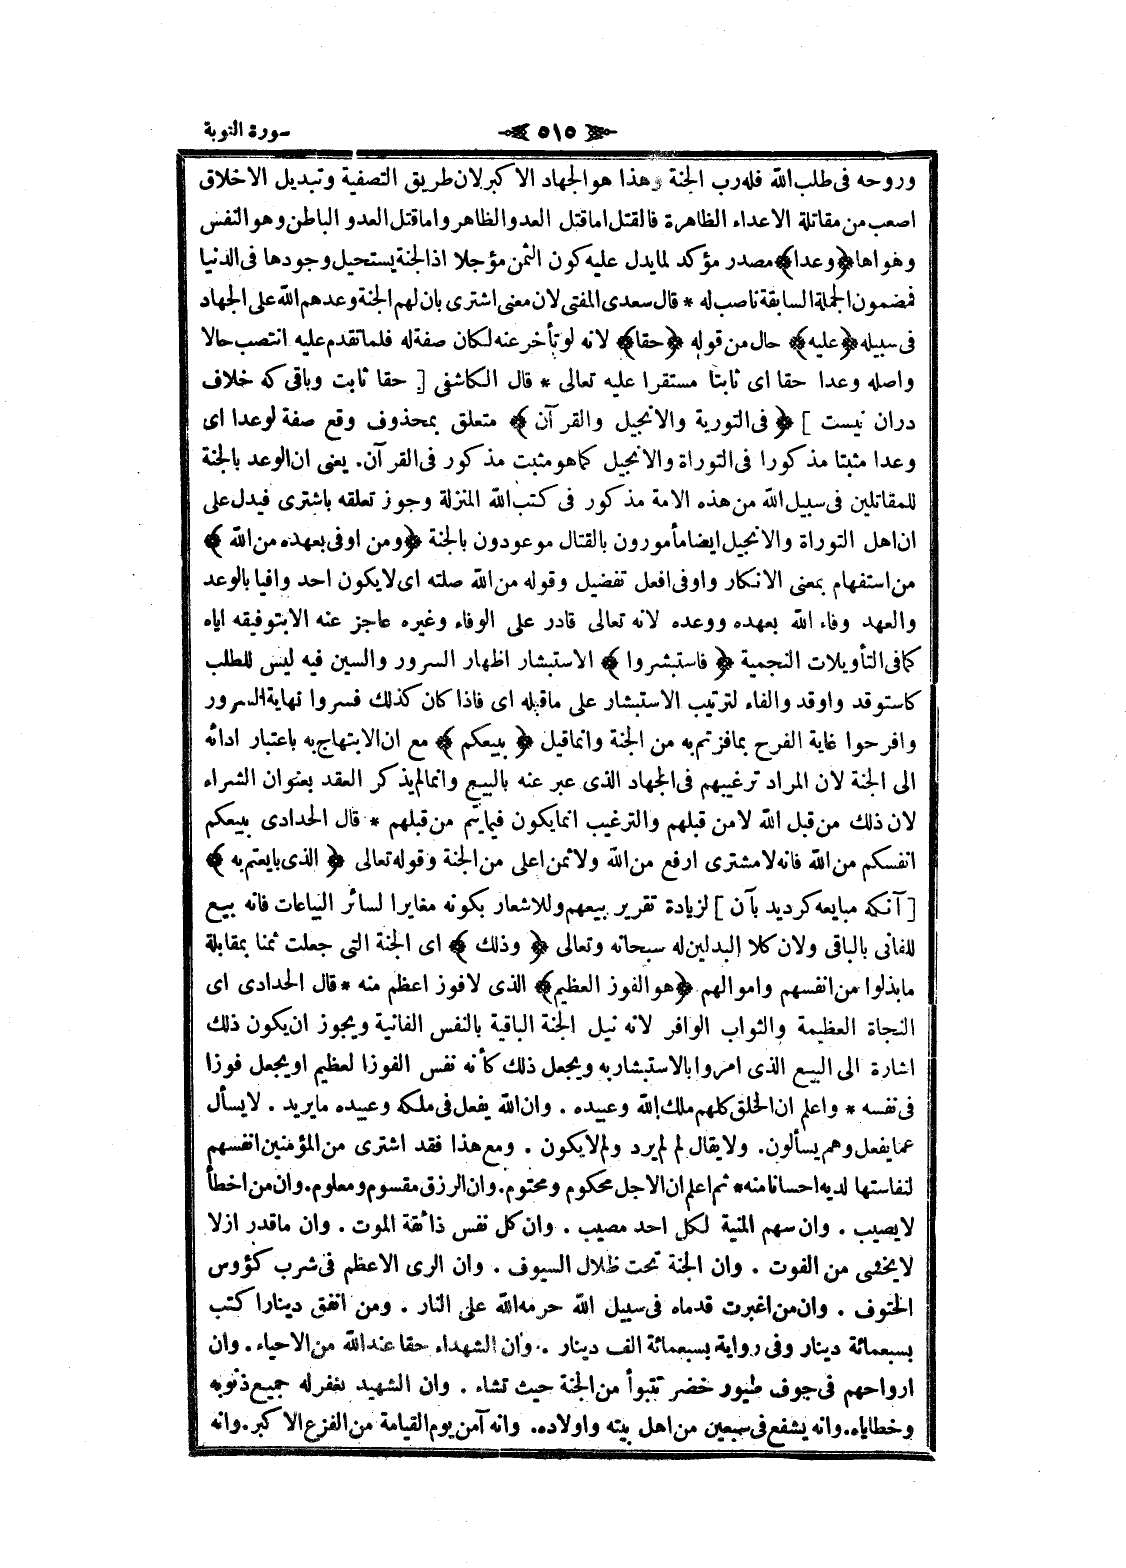 سورة التوبة ٥١٥
وروحه فى طلب الله فله رب الجنة وهذا هو الجهاد الاكبر لان طريق التصفية وتبديل الاخلاق
اصعب من مقاتلة الاعداء الظاهرة فالقتل اما قتل العدو الظاهر واما قتل العدو الباطن وهو النفس
وهواها ﴿وعدا﴾ مصدر مؤكد لما يدل عليه كون الثمن مؤجلا اذ الجنة يستحيل وجودها فى الدنيا
فمضمون الجملة السابقة ناصب له * قال سعدى المفتى لان معنى اشترى بان لهم الجنة وعدهم الله على الجهاد
فى سبيله ﴿عليه﴾ حال من قوله ﴿حقا﴾ لانه لو تأخر عنه لكان صفة له فلما تقدم عليه انتصب حالا
واصله وعدا حقا اى ثابتا مستقرا عليه تعالى * قال الكاشفى [ حقا ثابت وباقى كه خلاف
دران نيست ] ﴿فى التورية والانجيل والقرآن﴾ متعلق بمحذوف وقع صفة لوعدا اى
وعدا مثبتا مذكورا فى التوراة والانجيل كما هو مثبت مذكور فى القرآن. يعنى ان الوعد بالجنة
للمقاتلين فى سبيل الله من هذه الامة مذكور فى كتب الله المنزلة وجوز تعلقه باشترى فيدل على
ان اهل التوراة والانجيل ايضا مأمورون بالقتال موعودون بالجنة ﴿ومن اوفى بعهده من الله﴾
من استفهام بمعنى الانكار واوفى افعل تفضيل وقوله من الله صلته اى لا يكون احد وافيا بالوعد
والعهد وفاء الله بعهده ووعده لانه تعالى قادر على الوفاء وغيره عاجز عنه الا بتوفيقه اياه
كما فى التأويلات النجمية ﴿فاستبشروا﴾ الاستبشار اظهار السرور والسين فيه ليس للطلب
كاستوقد واوقد والفاء لترتيب الاستبشار على ماقبله اى فاذا كان كذلك فسروا نهاية السرور
وافرحوا غاية الفرح بما فزتم به من الجنة وانما قيل ﴿ببيعكم﴾ مع ان الابتهاج به باعتبار ادائه
الى الجنة لان المراد ترغيبهم فى الجهاد الذى عبر عنه بالبيع وانما لم يذكر العقد بعنوان الشراء
لان ذلك من قبل الله لا من قبلهم والترغيب انما يكون فيما يتم من قبلهم * قال الحدادى ببيعكم
انفسكم من الله فانه لا مشترى ارفع من الله ولا ثمن اعلى من الجنة وقوله تعالى ﴿الذى بايعتم به﴾
[آنكه مبايعه كرديد بآن ] لزيادة تقرير بيعهم وللاشعار بكونه مغايرا لسائر البياعات فانه بيع
للفانى بالباقى ولان كلا البدلين له سبحانه وتعالى ﴿وذلك﴾ اى الجنة التى جعلت ثمنا بمقابلة
ما بذلوا من انفسهم واموالهم ﴿هو الفوز العظيم﴾ الذى لا فوز اعظم منه * قال الحدادى اى
النجاة العظيمة والثواب الوافر لانه نيل الجنة الباقية بالنفس الفانية ويجوز ان يكون ذلك
اشارة الى البيع الذى امروا بالاستبشار به ويجعل ذلك كأنه نفس الفوز العظيم او يجعل فوزا
فى نفسه * واعلم ان الخلق كلهم ملك الله وعبيده . وان الله يفعل فى ملكه وعبيده ما يريد . لا يسأل
عما يفعل وهم يسألون. ولا يقال لم لم يرد ولم لا يكون . ومع هذا فقد اشترى من المؤمنين انفسهم
لنفاستها لديه احسانا منه * ثم اعلم ان الاجل محكوم ومحتوم. وان الرزق مقسوم ومعلوم. وان من اخطأ
لا يصيب . وان سهم المنية لكل احد مصيب . وان كل نفس ذائقة الموت . وان ماقدر ازلا
لا يخشى من الفوت . وان الجنة تحت ظلال السيوف . وان الرى الاعظم فى شرب كؤوس
الحتوف . وان من اغبرت قدماه فى سبيل الله حرمه الله على النار . ومن انفق دينارا كتب
بسبعمائة دينار وفى رواية بسبعمائة الف دينار . وان الشهداء حقا عند الله من الاحياء . وان
ارواحهم فى جوف طيور خضر تتبوأ من الجنة حيث تشاء . وان الشهيد يغفر له جميع ذنوبه
وخطاياه. وانه يشفع فى سبعين من اهل بيته واولاده. وانه آمن يوم القيامة من الفزع الاكبر. وانه